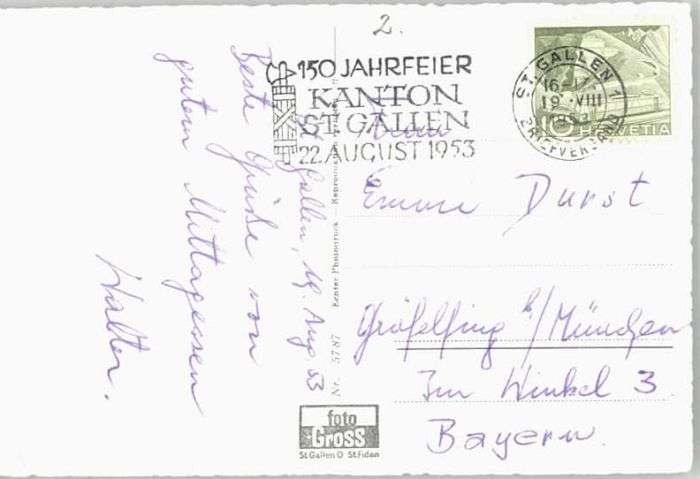 2.
150 JAHRFEIER
KANTON
ST GALLEN
22. AUGUST 1953
ST. GALLEN 1
16-17
19. VIII
1953
BRIEFVERSAND
10 HELVETIA
St. Gallen, 19. Aug. 53
Beste Grüße von
gutem Mittagessen
Walter.
Nr. 5787 Echter Photodruck
Frau
Emmy Durst
Gräfelfing b/München
Im Winkel 3
Bayern.
foto
Gross
St Gallen O St Fiden